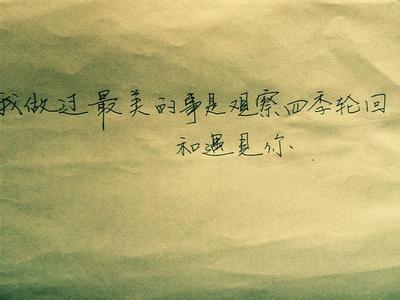 我做过最美的事是观察四季轮回
和遇见你.